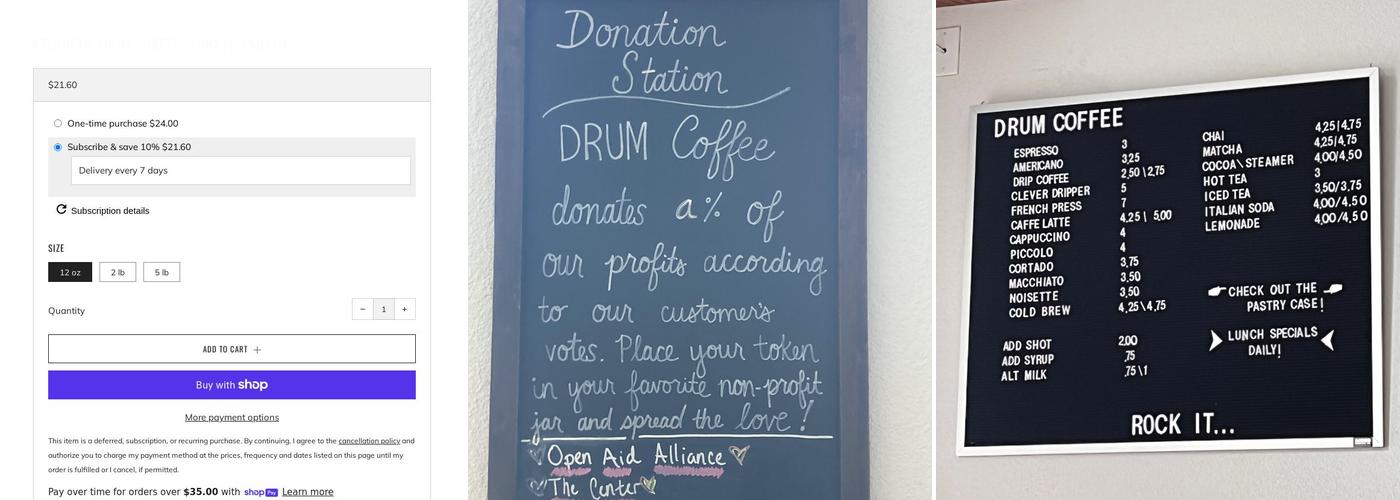 $21.60
One-time purchase $24.00
Subscribe & save 10% $21.60
Delivery every 7 days
Subscription details
SIZE
12 oz 2 lb 5 lb
Quantity − 1 +
ADD TO CART +
Buy with shop
More payment options
This item is a deferred, subscription, or recurring purchase. By continuing, I agree to the cancellation policy and
authorize you to charge my payment method at the prices, frequency and dates listed on this page until my
order is fulfilled or I cancel, if permitted.
Pay over time for orders over $35.00 with shop Pay Learn more
Donation
Station
DRUM Coffee
donates a % of
our profits according
to our customer's
votes. Place your token
in your favorite non-profit
jar and spread the love!
Open Aid Alliance
The Center
DRUM COFFEE
ESPRESSO 3
AMERICANO 3.25
DRIP COFFEE 2.50\2.75
CLEVER DRIPPER 5
FRENCH PRESS 7
CAFFE LATTE 4.25| 5.00
CAPPUCCINO 4
PICCOLO 4
CORTADO 3.75
MACCHIATO 3.50
NOISETTE 3.50
COLD BREW 4.25\4.75
ADD SHOT 2.00
ADD SYRUP .75
ALT MILK .75\1
CHAI 4.25|4.75
MATCHA 4.25|4.75
COCOA\STEAMER 4.00/4.50
HOT TEA 3
ICED TEA 3.50/3.75
ITALIAN SODA 4.00/4.50
LEMONADE 4.00/4.50
CHECK OUT THE
PASTRY CASE!
LUNCH SPECIALS
DAILY!
ROCK IT...